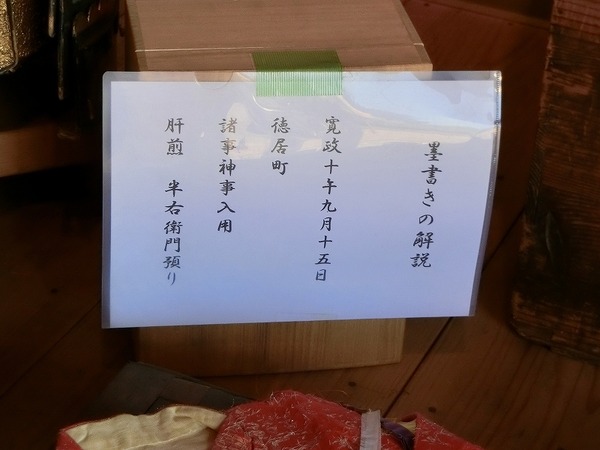 墨書きの解説
寛政十午九月十五日
徳居町
諸事神事入用
肝煎　半右衛門預り